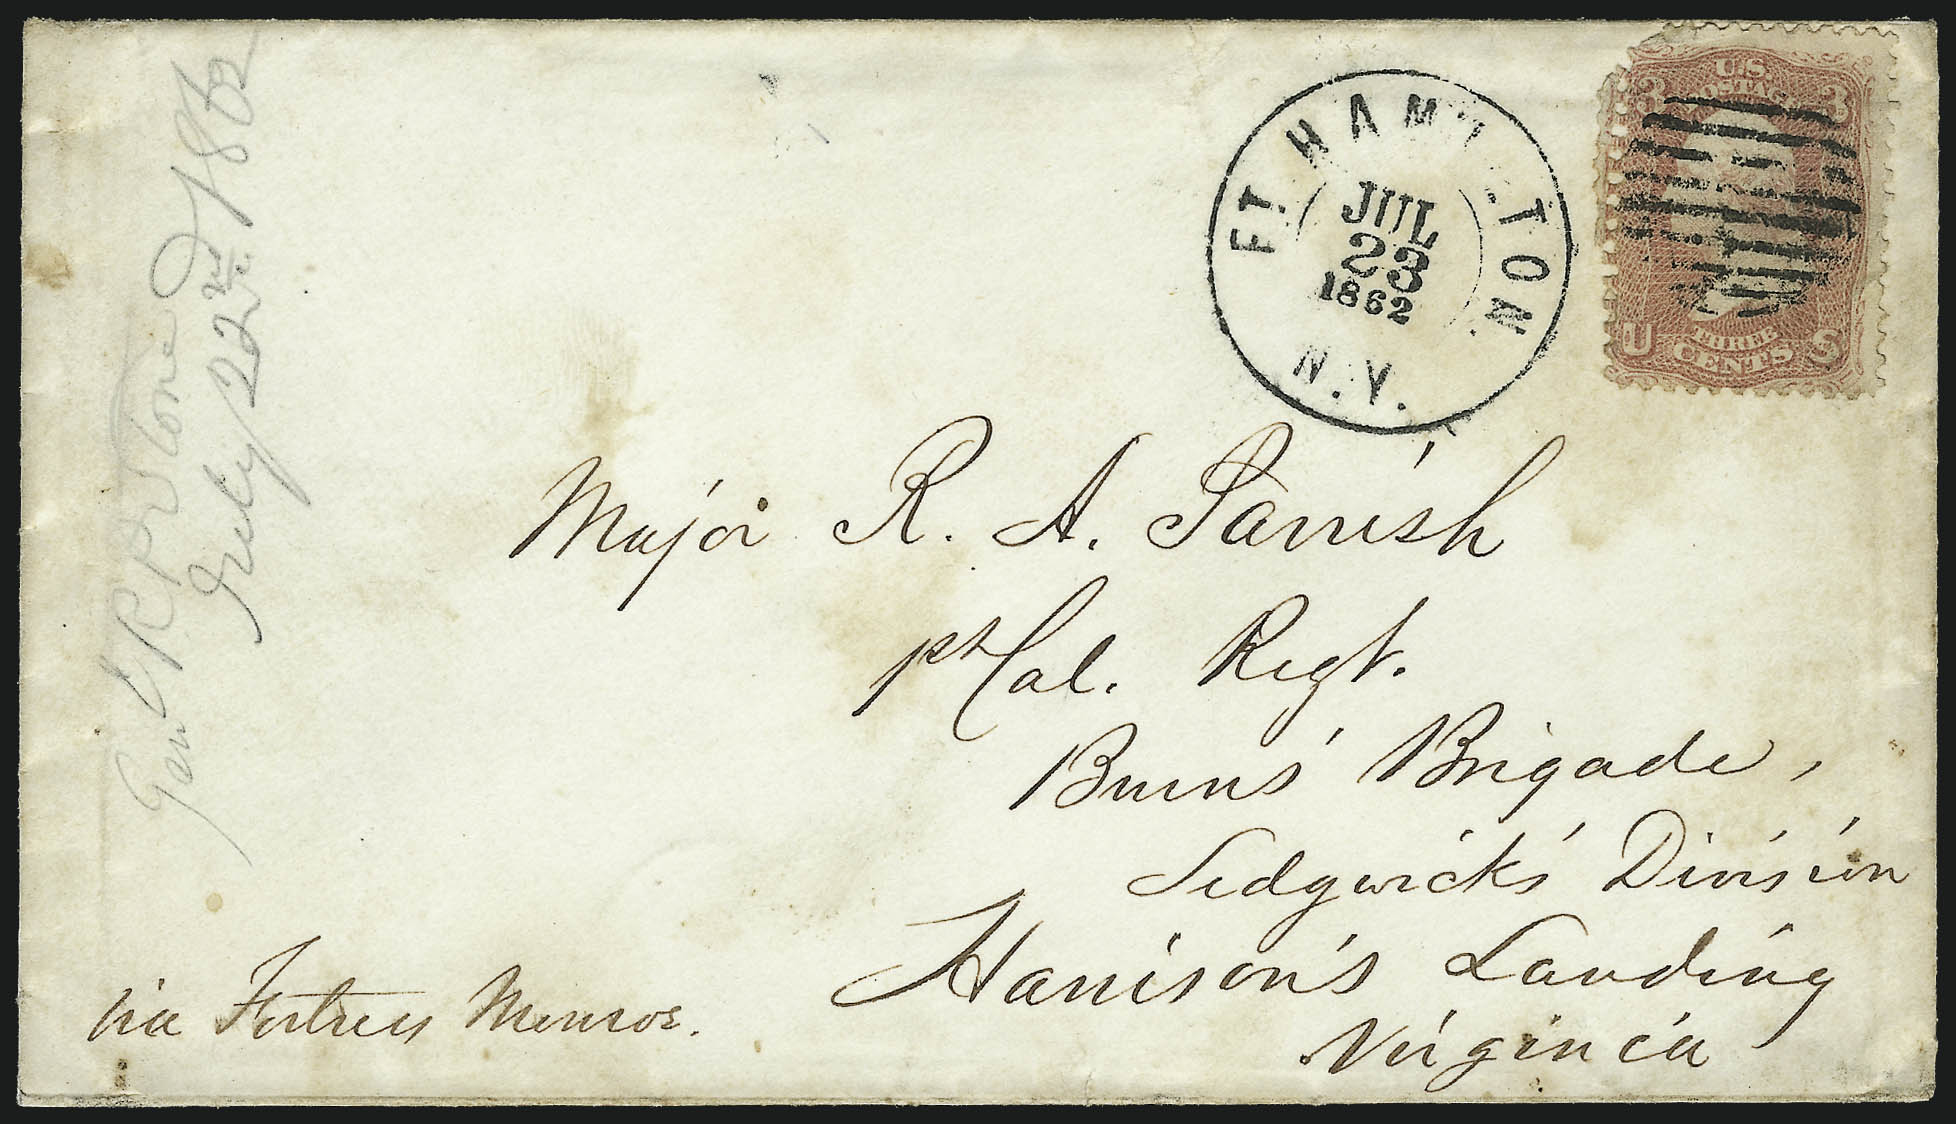 Genl C P Stone
July 22nd 1862
FT. HAMILTON
JUL
23
1862
N.Y.
U.S.
POSTAGE
3 3
U THREE S
CENTS
Major R. A. Parrish
1st Cal. Regt.
Burns' Brigade,
Sedgwick's Division
Harrison's Landing
Virginia
via Fortress Monroe.